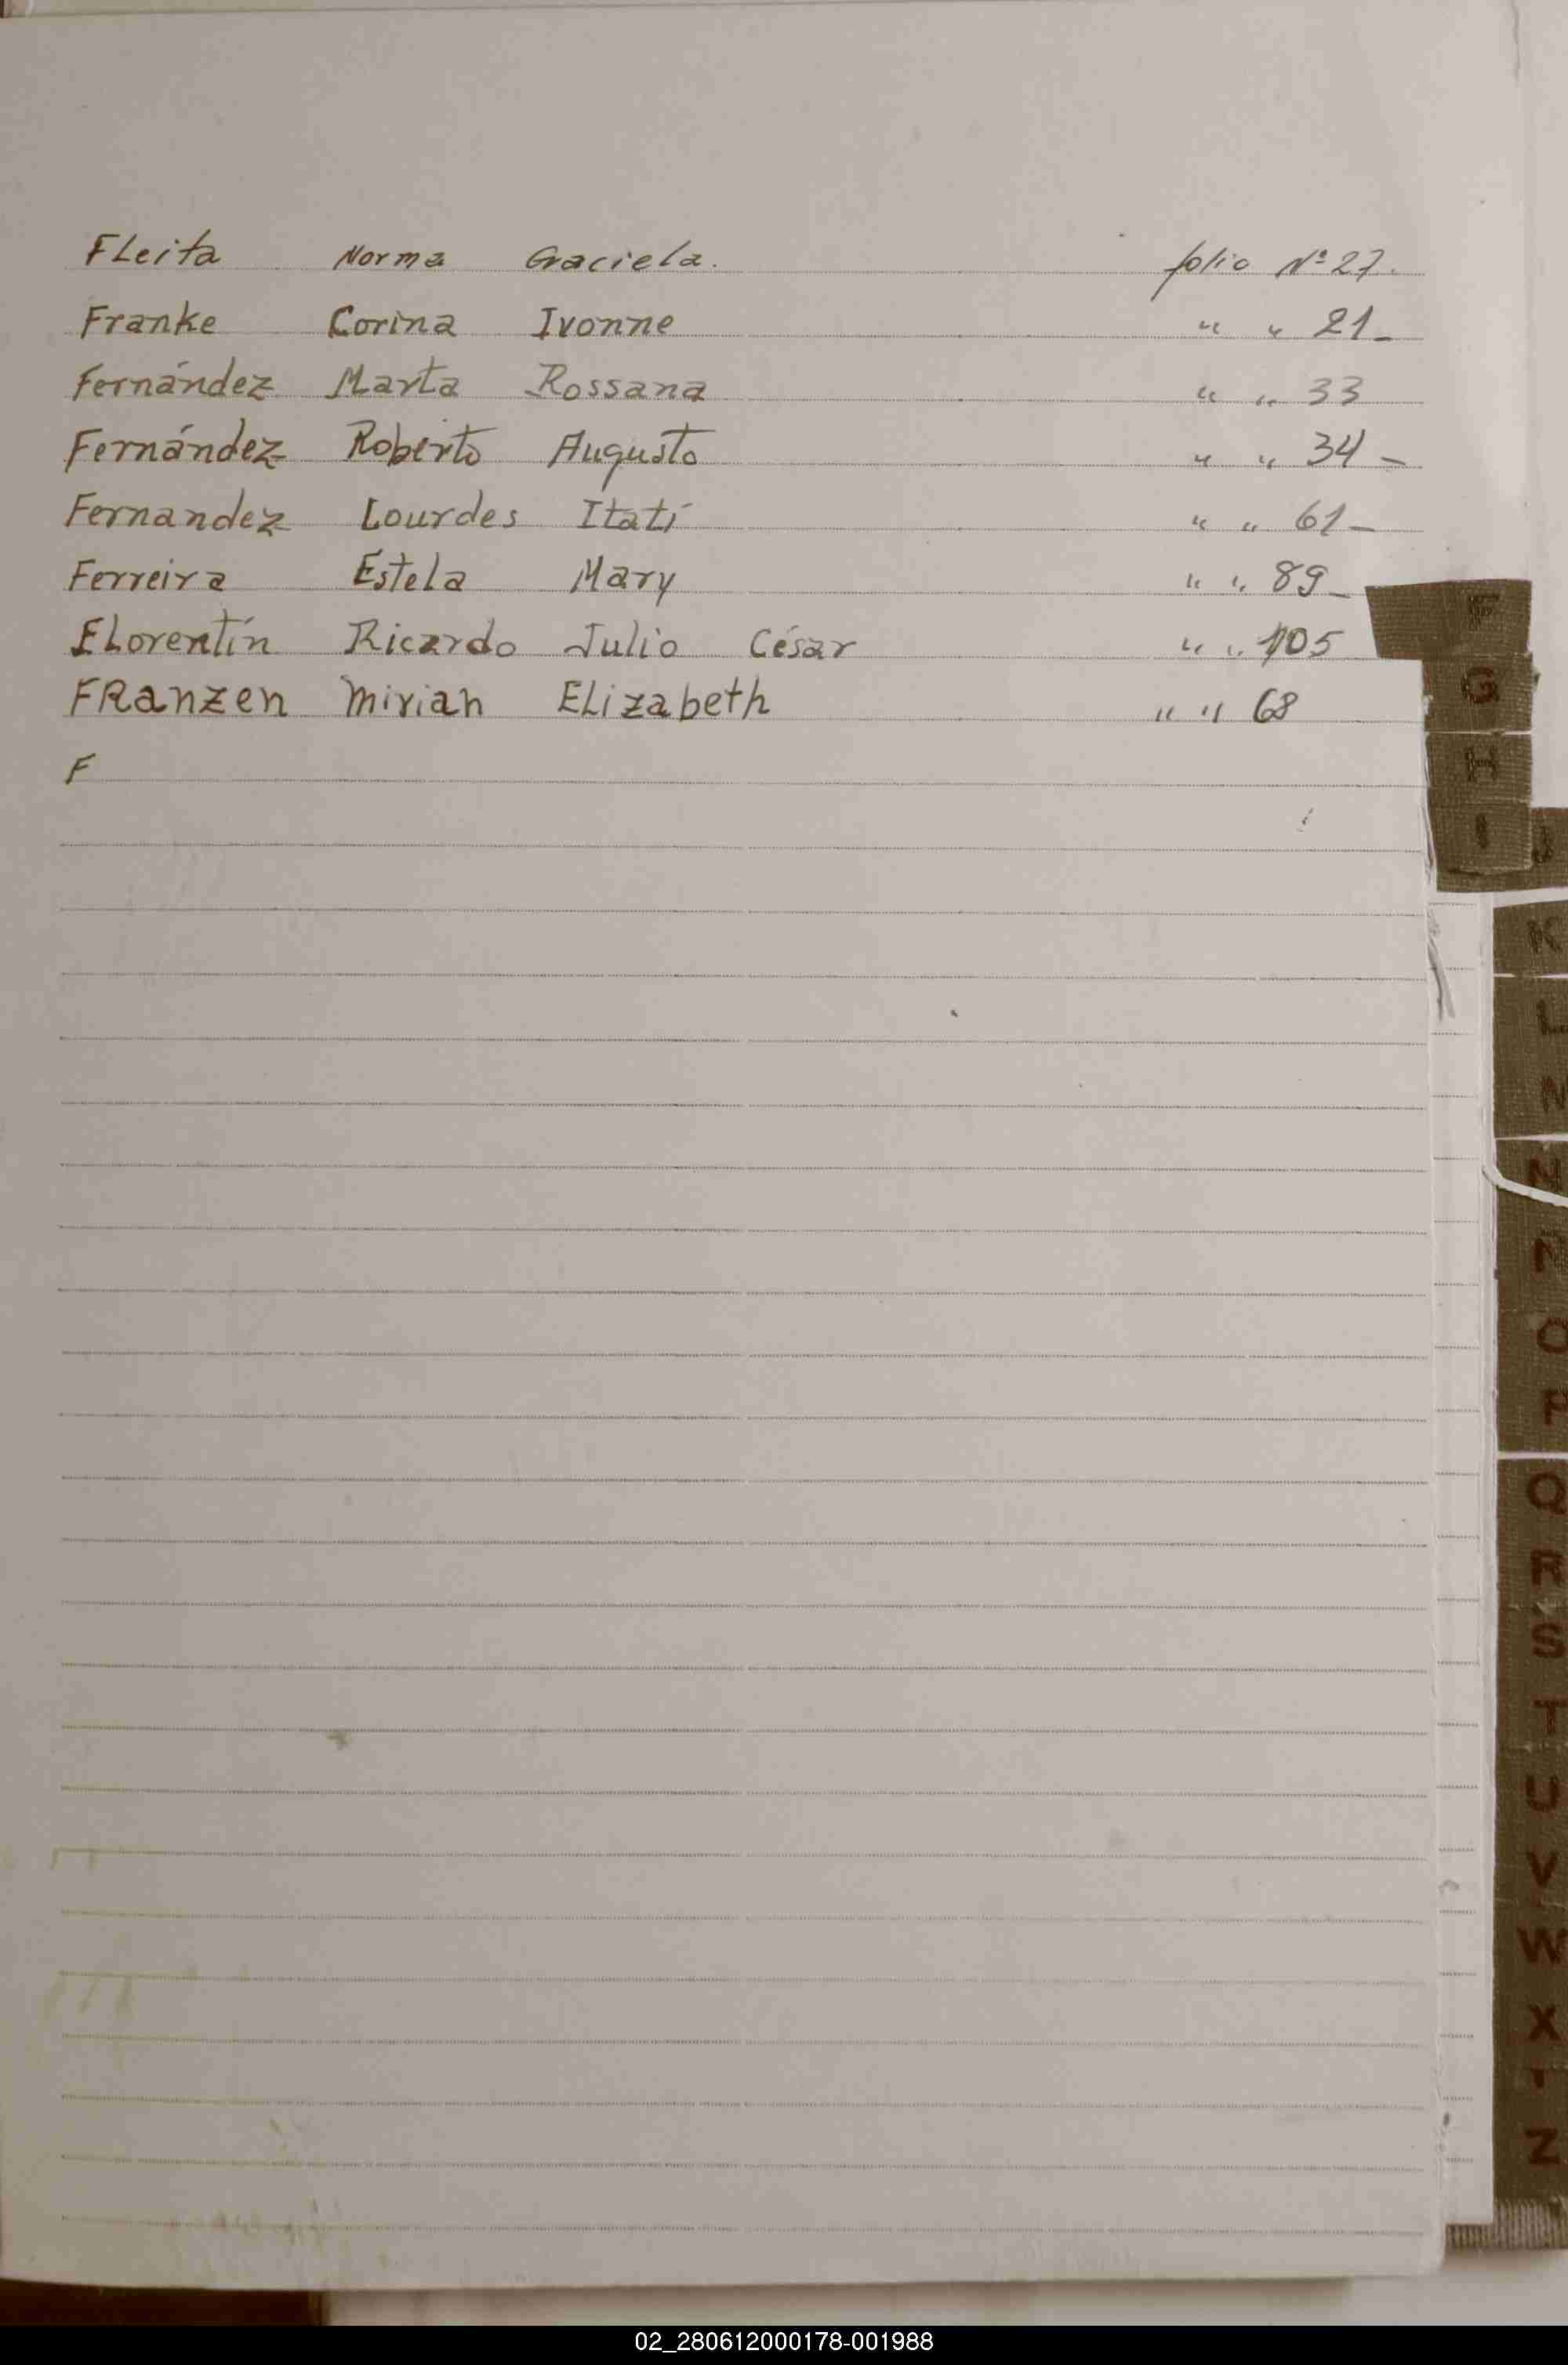 FLeita Norma Graciela. folio Nº 27.
Franke Corina Ivonne " " 21-
Fernández Marta Rossana " " 33
Fernández Roberto Augusto " " 34-
Fernandez Lourdes Itatí " " 61-
Ferreira Estela Mary " " 89-
Florentín Ricardo Julio César " " 105
FRanzen Mirian ELizabeth " " 68
F
F
G
H
I
J
K
L
N
O
P
Q
R
S
T
U
V
W
X
Z
02_280612000178-001988